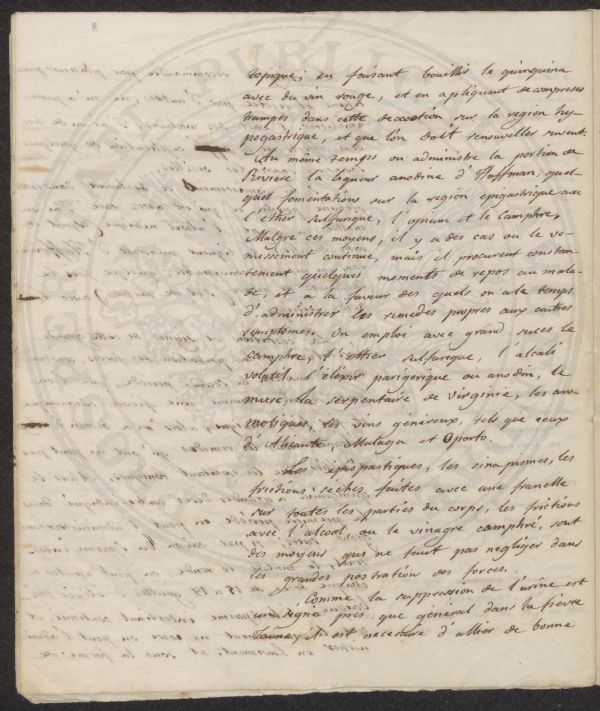 8
topique; en faisant bouillir le quinquina
avec du vin rouge, et en apliquant de compreses
trampés dans cette decoction sur la region hy-
pogastrique, et que l'on doit renouveller suvent.
Au même temps on administre la portion de
Riviere la liqueur anodine d'Hoffman, quel-
ques fomentations sur la region epigastrique avec
l'ether sulfurique, l'opium et le Camphre.
Malgré ces moyens, il y a des cas ou le vo-
missement continue, mais il procurent constan-
tement quelques moments de repos au mala-
de, et a la faveur des quels on a le temps
d'administrer les remedes propres aux autres
symptomes. On emploi avec grand succes le
Camphre, l'ether sulfurique, l'alcali
volatil, l'élexir parigorique ou anodin, le
musc, la serpentaire de Virginie, les aro-
matiques, les vins généreux, tels que ceux
d'Alicante, Malaga et Oporto.
Les épispastiques, les sinapismes, les
frictions sèches faites avec une franelle
sur toutes les parties du corps, les frictions
avec l'alcool, ou le vinagre camphré, sont
des moyens qui ne faut pas negliger dans
les grandes postration des forces.
Comme la suppression de l'urine est
un signe pres que general dans la fievre
Jaune, il est necesaire d'allier de bonne